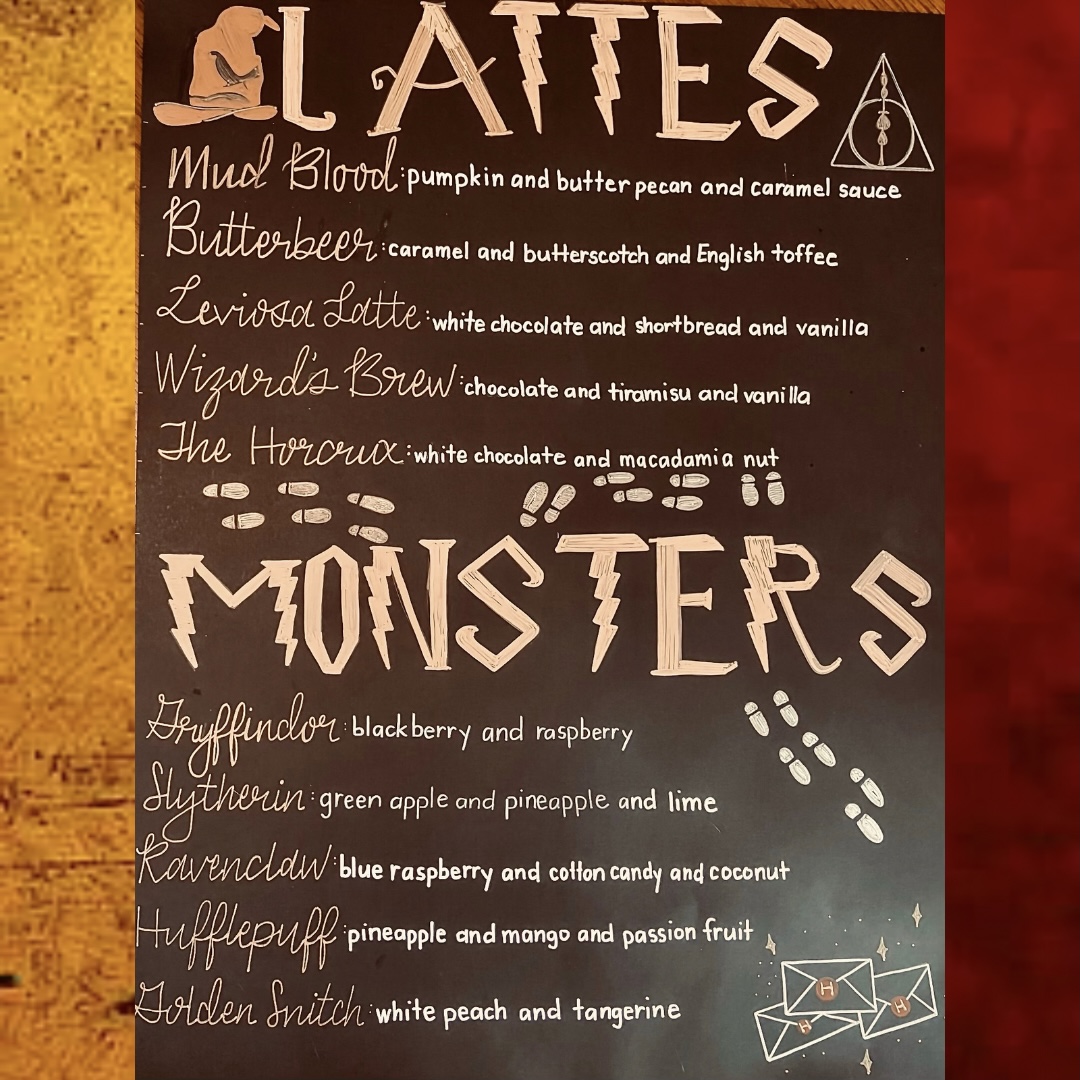 LATTES
Mud Blood: pumpkin and butter pecan and caramel sauce
Butterbeer: caramel and butterscotch and English toffee
Leviosa Latte: white chocolate and shortbread and vanilla
Wizard's Brew: chocolate and tiramisu and vanilla
The Horcrux: white chocolate and macadamia nut
MONSTERS
Gryffindor: blackberry and raspberry
Slytherin: green apple and pineapple and lime
Ravenclaw: blue raspberry and cotton candy and coconut
Hufflepuff: pineapple and mango and passion fruit
Golden Snitch: white peach and tangerine
H
H
H